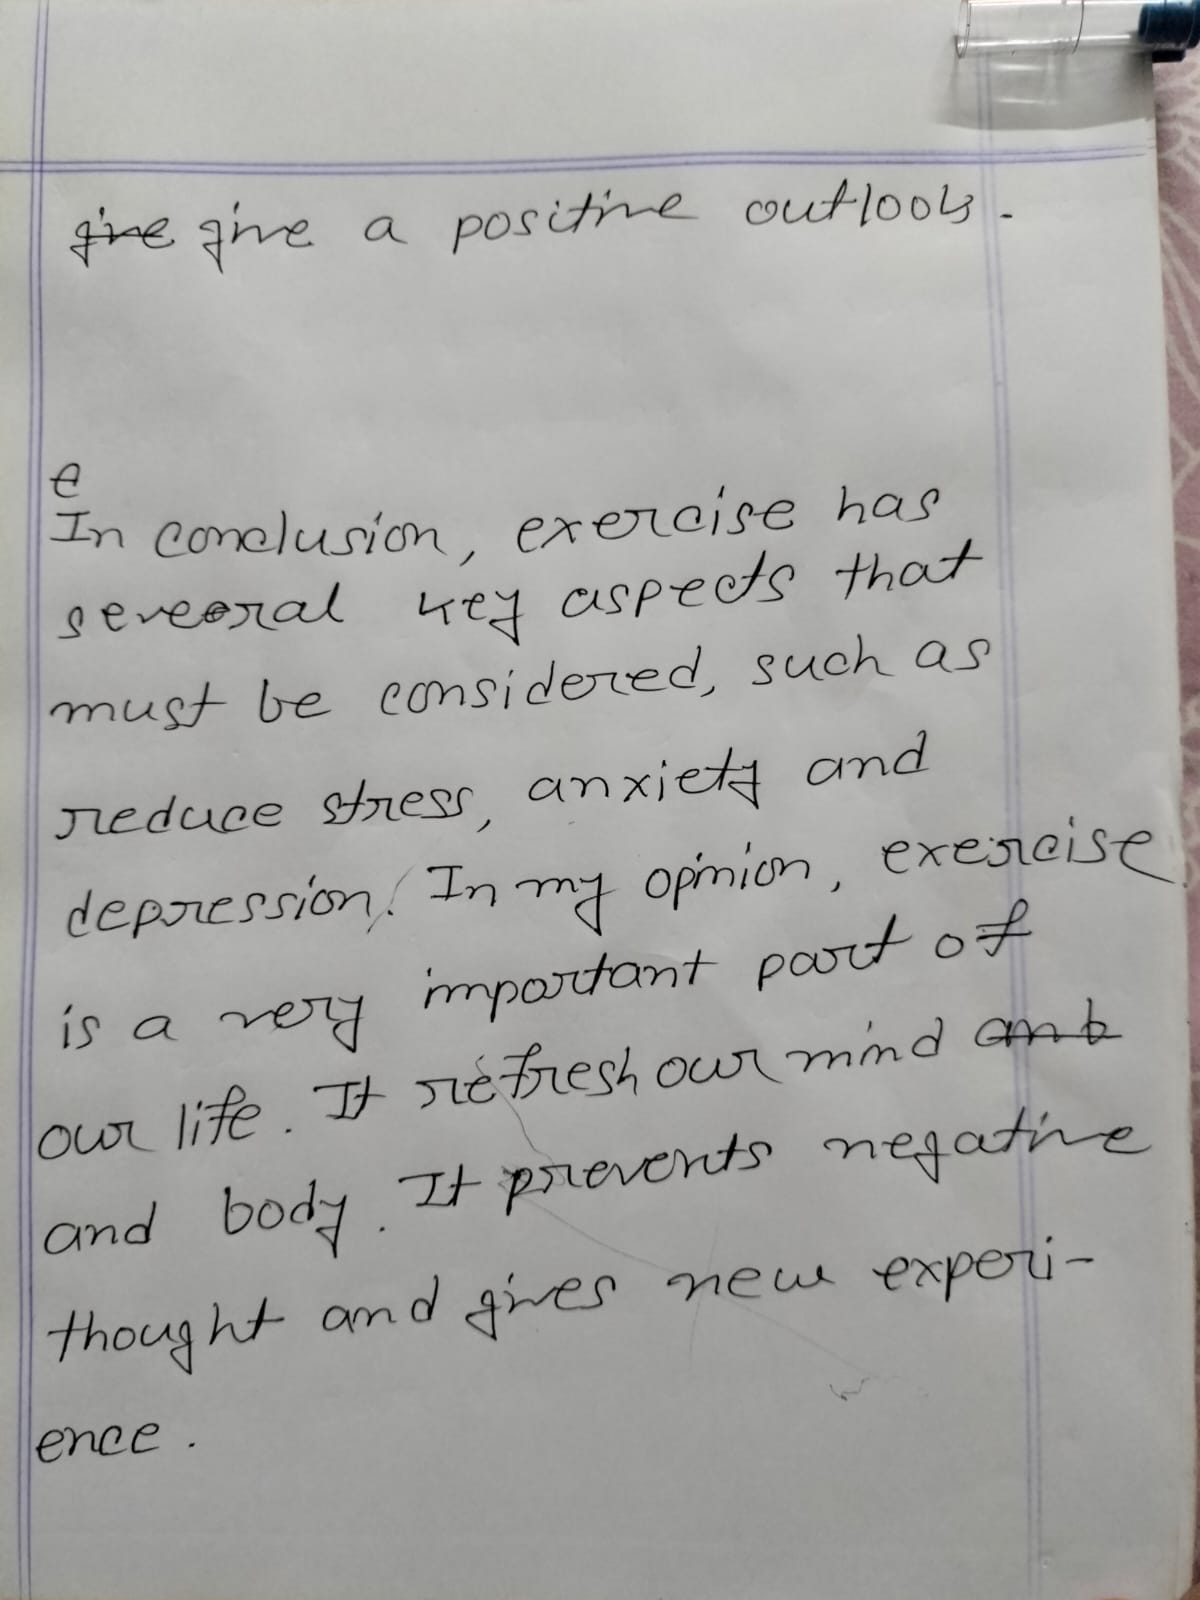 give give a positive outlook.
e
In conclusion, exercise has
several key aspects that
must be considered, such as
reduce stress, anxiety and
depression. In my opinion, exercise
is a very important part of
our life. It refresh our mind anb
and body. It prevents negative
thought and gives new experi-
ence.